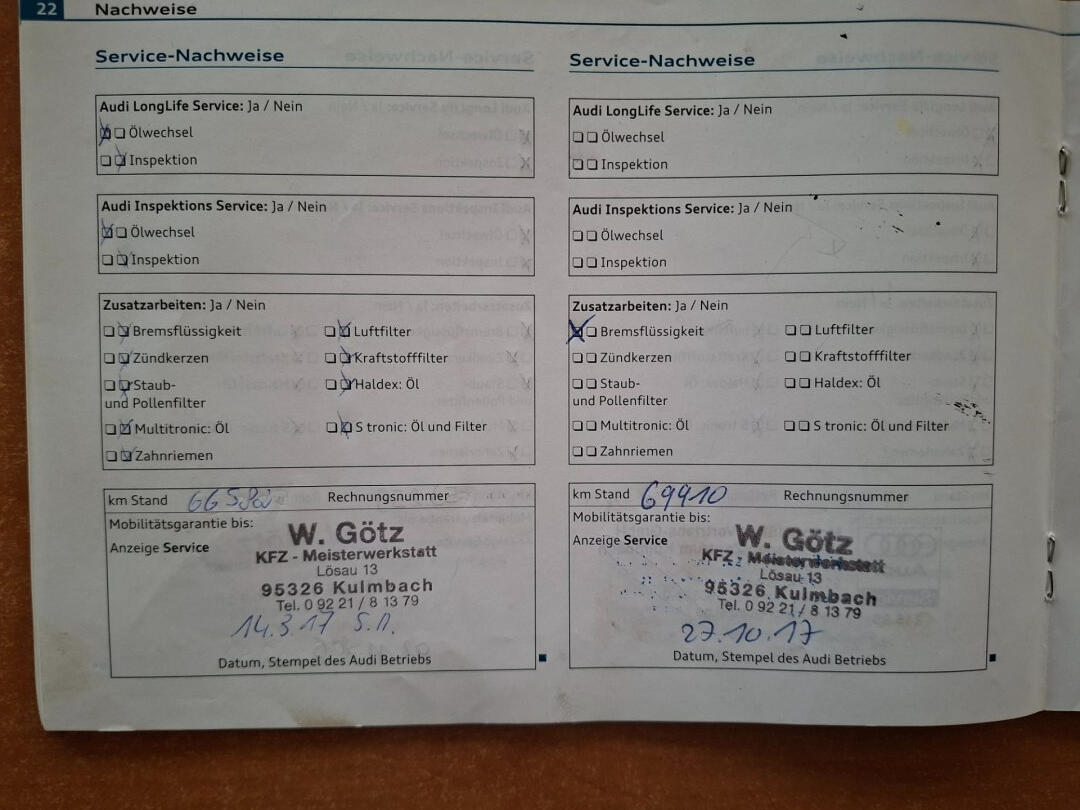 22 Nachweise
Service-Nachweise
Audi LongLife Service: Ja / Nein
Ölwechsel
Inspektion
Audi Inspektions Service: Ja / Nein
Ölwechsel
Inspektion
Zusatzarbeiten: Ja / Nein
Bremsflüssigkeit Luftfilter
Zündkerzen Kraftstofffilter
Staub- Haldex: Öl
und Pollenfilter
Multitronic: Öl S tronic: Öl und Filter
Zahnriemen
km Stand Rechnungsnummer
Mobilitätsgarantie bis:
Anzeige Service
W. Götz
KFZ - Meisterwerkstatt
Lösau 13
95326 Kulmbach
Tel. 0 92 21 / 8 13 79
14.3.17
Datum, Stempel des Audi Betriebs
Service-Nachweise
Audi LongLife Service: Ja / Nein
Ölwechsel
Inspektion
Audi Inspektions Service: Ja / Nein
Ölwechsel
Inspektion
Zusatzarbeiten: Ja / Nein
Bremsflüssigkeit Luftfilter
Zündkerzen Kraftstofffilter
Staub- Haldex: Öl
und Pollenfilter
Multitronic: Öl S tronic: Öl und Filter
Zahnriemen
km Stand 69910 Rechnungsnummer
Mobilitätsgarantie bis:
Anzeige Service
W. Götz
KFZ - Meisterwerkstatt
Lösau 13
95326 Kulmbach
Tel. 0 92 21 / 8 13 79
27.10.17
Datum, Stempel des Audi Betriebs